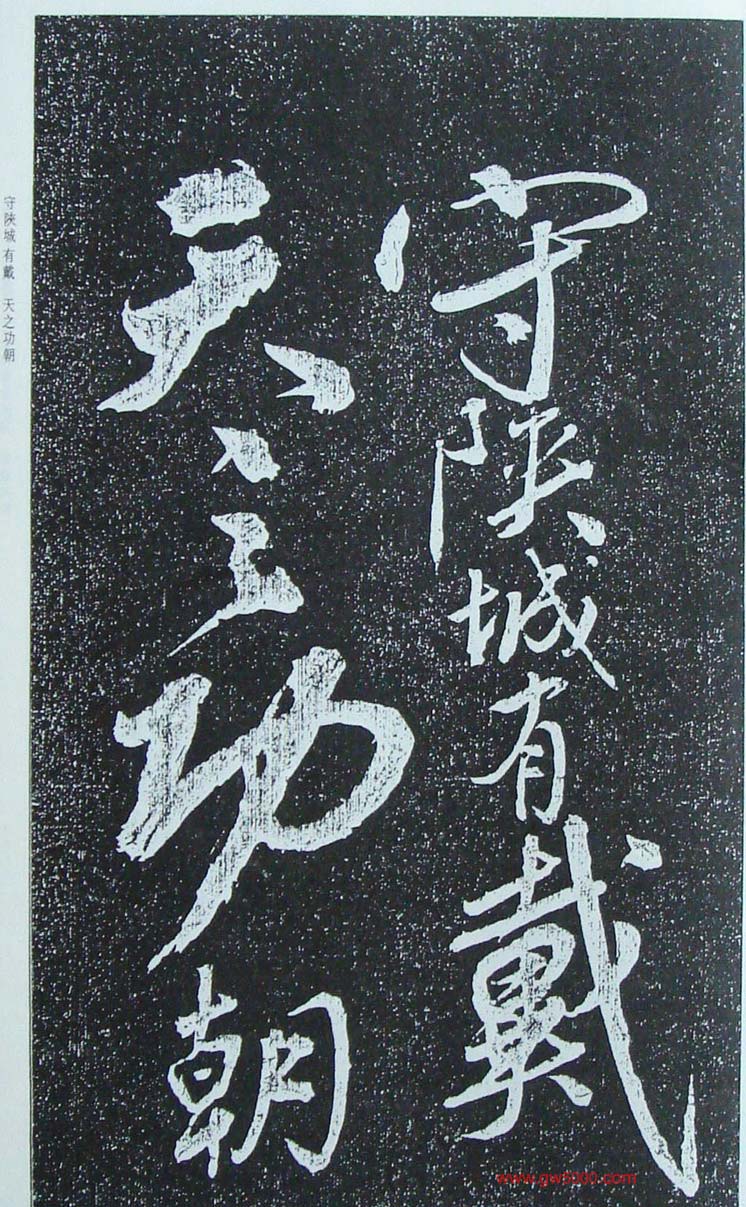 守陕城有戴
天之功朝
守陕城有戴 天之功朝
www.gw5000.com